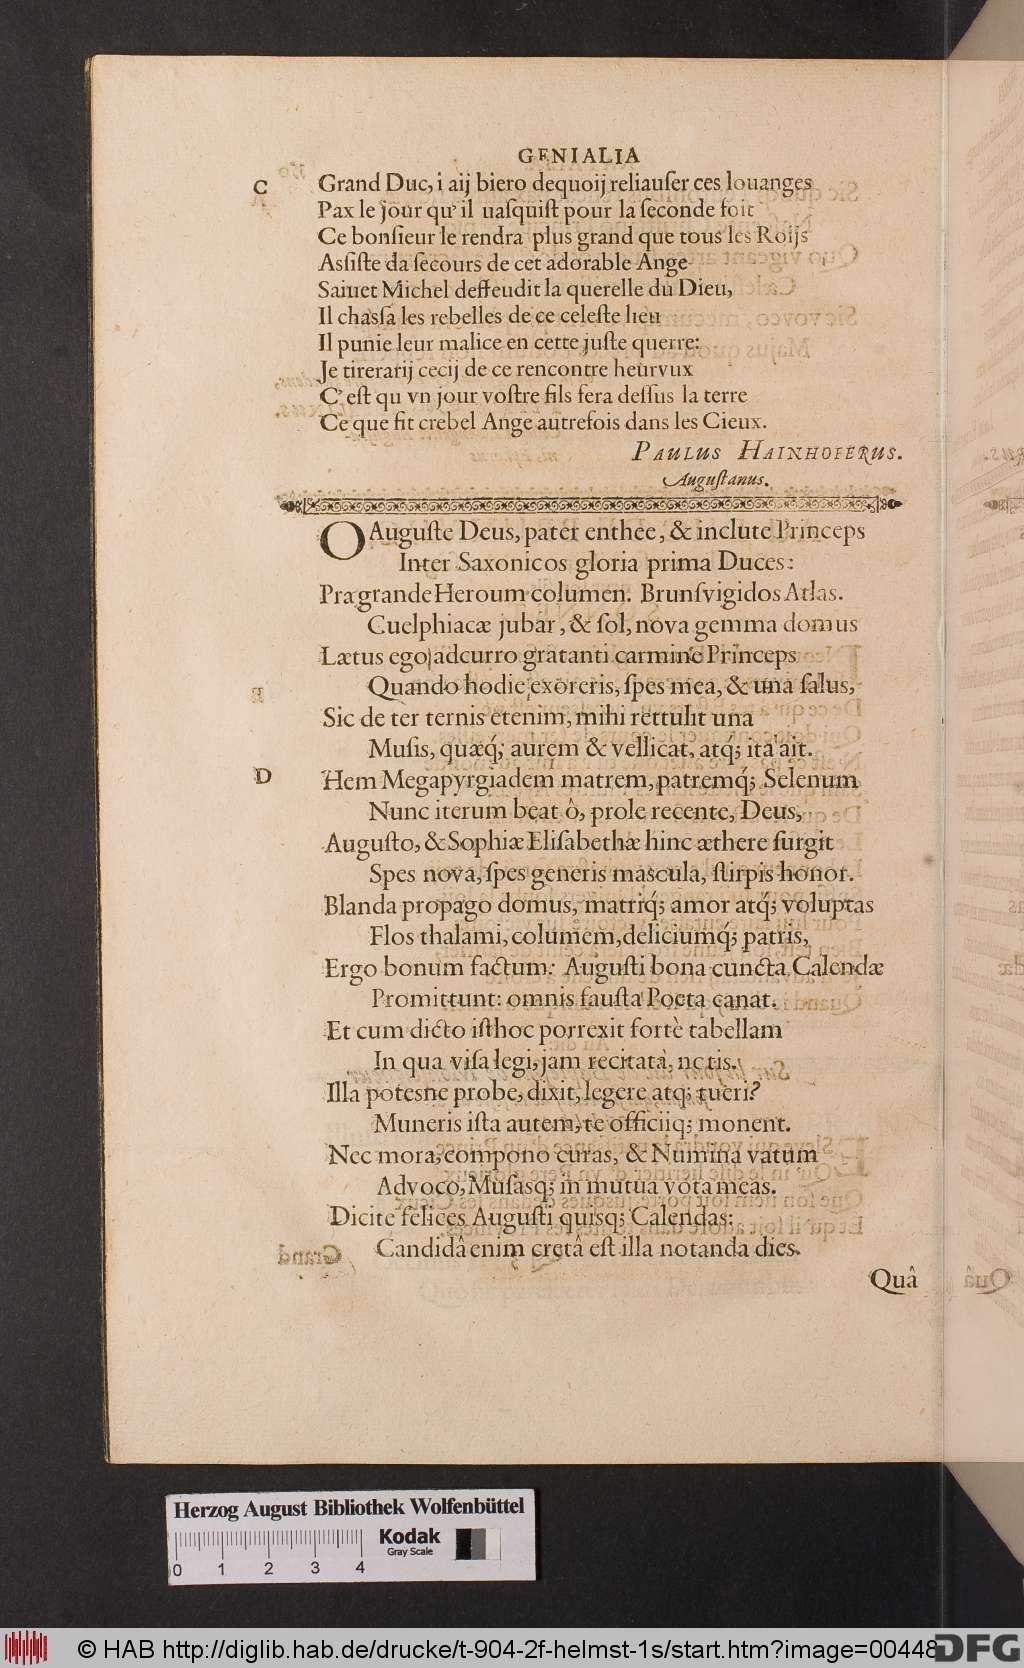 GENIALIA
C Grand Duc, i aij biero dequoij reliauſer ces louanges
Pax le jour qu' il uaſquiſt pour la ſeconde foit
Ce bonſieur le rendra plus grand que tous les Roijs
Asſiſte da ſecours de cet adorable Ange
Saiuet Michel deffeudit la querelle du Dieu,
Il chasſa les rebelles de ce celeſte lieu
Il punie leur malice en cette juſte querre:
Je tirerarij cecij de ce rencontre heurvux
C' eſt qu vn jour voſtre fils ſera deſſus la terre
Ce que fit crebel Ange autrefois dans les Cieux.
PAULUS HAINHOFERUS.
Auguſtanus.
O Auguſte Deus, pater enthee, & inclute Princeps
Inter Saxonicos gloria prima Duces:
Pragrande Heroum columen. Brunſvigidos Atlas.
Guelphiacæ jubar, & ſol, nova gemma domus
Lætus ego adcurro gratanti carmine Princeps
Quando hodie exoreris, ſpes mea, & una ſalus,
Sic de ter ternis etenim, mihi rettulit una
Muſis, quæq́; aurem & vellicat, atq́; ita ait.
D Hem Megapyrgiadem matrem, patremq́; Selenum
Nunc iterum beat ô, prole recente, Deus,
Auguſto, & Sophiæ Eliſabethæ hinc æthere ſurgit
Spes nova, ſpes generis mascula, ſtirpis honor.
Blanda propago domus, matriq́; amor atq́; voluptas
Flos thalami, columem, deliciumq́; patris,
Ergo bonum factum: Auguſti bona cuncta Calendæ
Promittunt: omnis fauſta Poeta canat.
Et cum dicto iſthoc porrexit fortè tabellam
In qua viſa legi, jam recitata, notis.
Illa potesne probe, dixit, legere atq; tueri?
Muneris iſta autem, te officiiq; monent.
Nec mora, compono curas, & Numina vatum
Advoco, Muſasq; in mutua vota meas.
Dicite felices Auguſti quisq; Calendas:
Candidâ enim cretâ eſt illa notanda dies.
Quâ
Herzog August Bibliothek Wolfenbüttel
0 1 2 3 4
Kodak
Gray Scale
© HAB http://diglib.hab.de/drucke/t-904-2f-helmst-1s/start.htm?image=00448
DFG